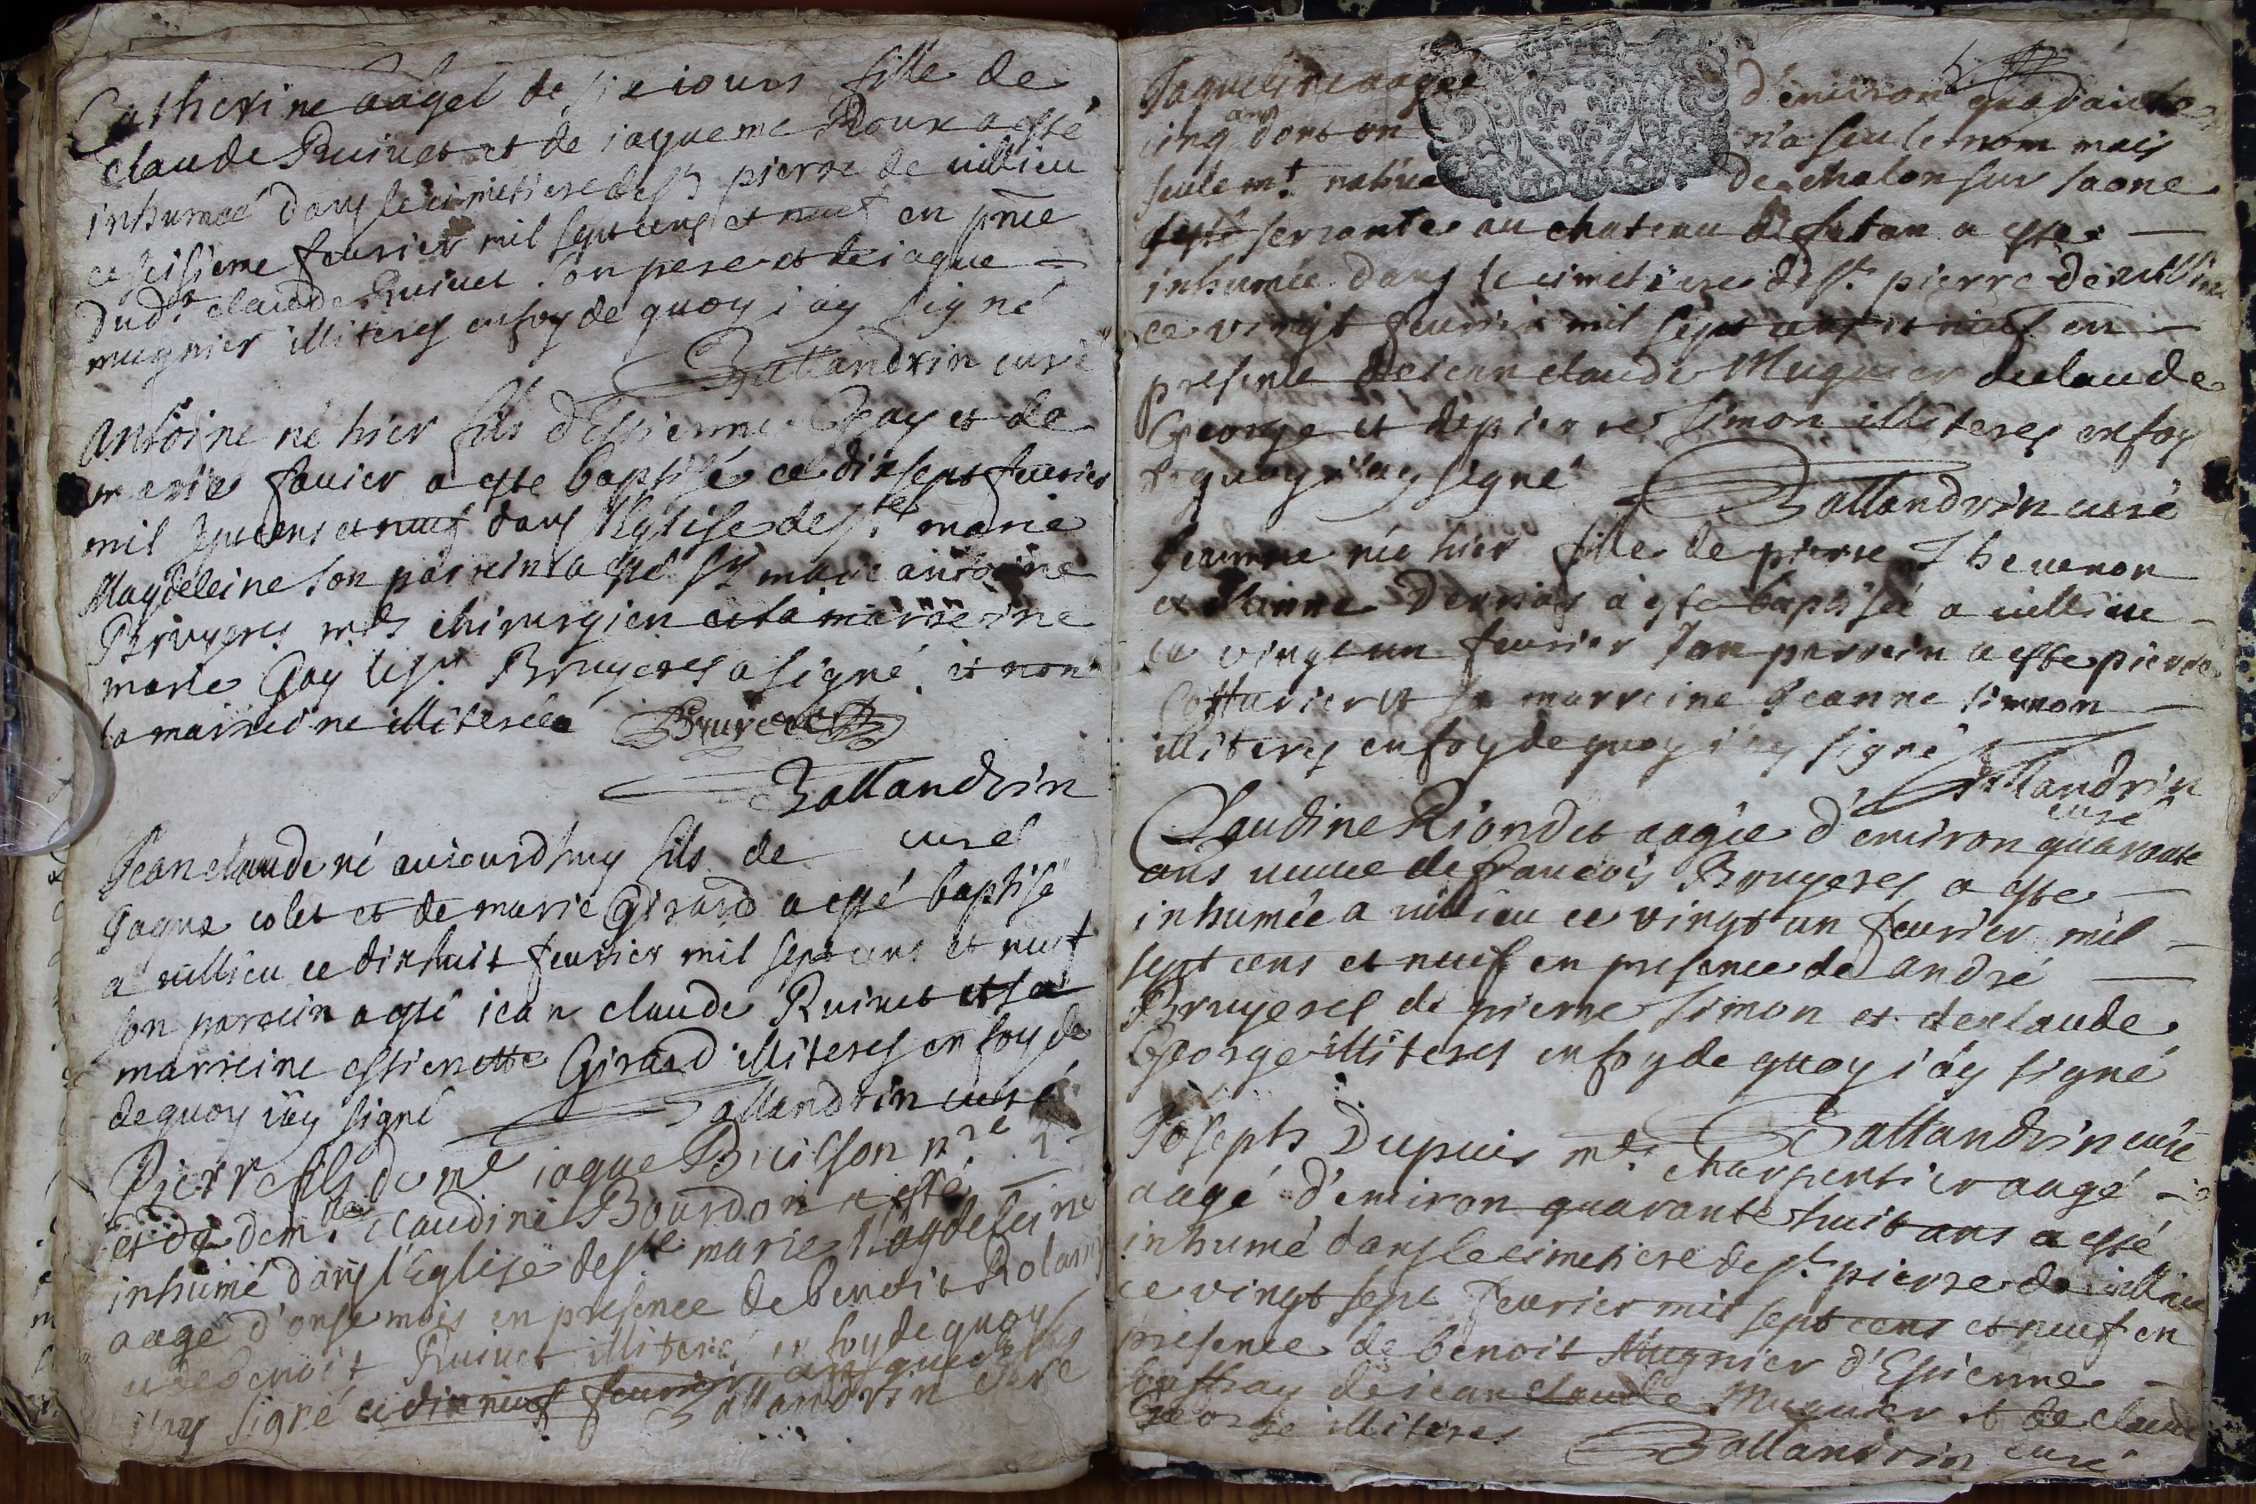 Catherine aageé de six iours fille de
claude Ruivet et de iaqueme Roux a esté
inhumeé dans le cimetiere de st pierre de villieu
ce seisieme feurier mil sept cens et neuf en pnce
dudt claude Ruivet son pere et de iaque
mugnier illiteres en foy de quoy i'ay signé
Ballandrin curé
Antoine né hier fils d'Estienne Gay et de
marie favier a esté baptisé ce dixsept feurier
mil sept cens et neuf dans l'Eglise de ste marie
Magdeleine son parrein a esté sr marc antoine
Bruyeres mde chirurgien et la marreine
marie Gay le sr Bruyeres a signé et non
la marreine illitereé Bruyeres
Ballandrin
curé
Jean claude né auiourdhuy fils de
Jaque colet et de marie Girard a esté baptisé
a villieu ce dixhuit feurier mil sept cens et neuf
son parrein a esté iean claude Ruivet et sa
marreine estienette Girard illiteres en foy de
de quoy i'ay signé Ballandrin curé
Pierre fils de me iaque Buisson nre
et de demlle claudine Bourdon a esté
inhumé dans l'Eglise de ste marie Magdeleine
aagé d'onse mois en presence de benoit Roland
et de benoit Ruivet illiteré en foy de quoy
i'ay signé ce dix neuf feurier
Ballandrin curé
Jaqueline aageé d'environ quarante
cinq ans dont on n'a seu le nom mais
seulemt. natiue de chalon sur saone
servante au chateau a esté
inhumeé dans le cimetiere de st. pierre de villieu
ce vingt feurier mil sept cens et neuf en
presence de iean claude Mugnier de claude
George et de pierre simon illiteres en foy
de quoy i'ay signé
Ballandrin curé
Jeanne née hier fille de pierre Thevenon
et a esté baptiseé a villieu
ce vingt un feurier son parrein a esté pierre
Cotturier et sa marreine Jeanne simon
illiteres en foy de quoy i'ay signé
Ballandrin
curé
Claudine Riondet aagée d'environ quarante
ans veuve de francois Bruyeres a esté
inhumée a villieu ce vingt un feurier mil
sept cens et neuf en presence de andré
Bruyeres de pierre simon et de claude
George illiteres en foy de quoy i'ay signé
Ballandrin curé
Joseph Dupuis md. charpentier aagé
aagé d'environ quarante huit ans a esté
inhumé dans le cimetiere de st. pierre de villieu
ce vingt sept feurier mil sept cens et neuf en
presence de benoit Mugnier d'Estienne
de iean claude Mugnier et de claude
George illiteres Ballandrin curé